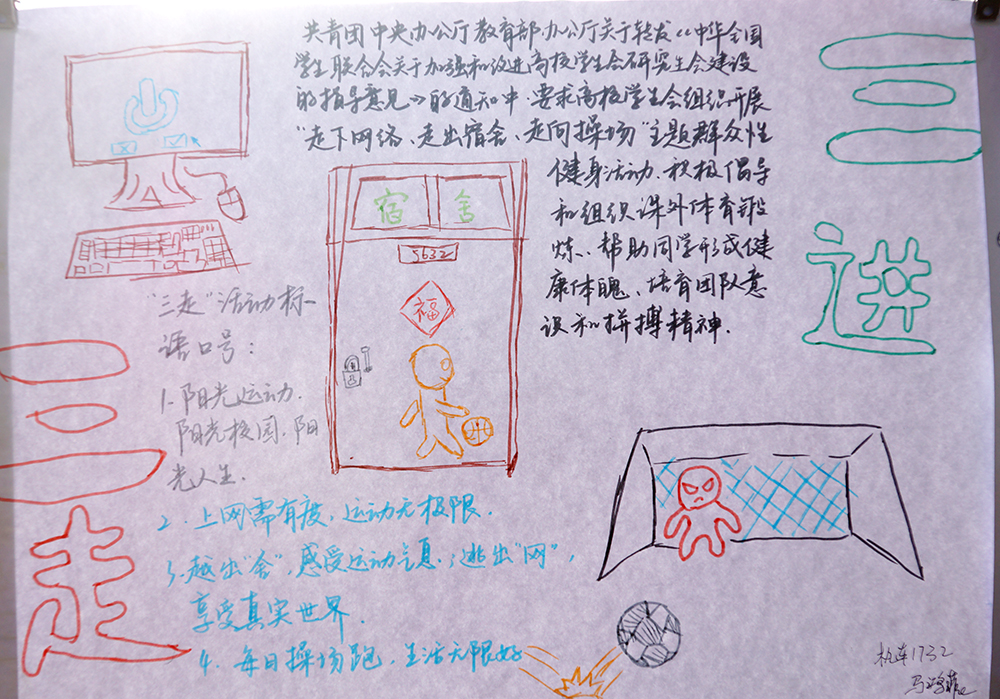 共青团中央办公厅教育部办公厅关于转发《中华全国
学生联合会关于加强和改进高校学生会研究生会建设
的指导意见》的通知中.要求高校学生会组织开展
"走下网络、走出宿舍、走向操场"主题群众性
健身活动.积极倡导
和组织课外体育锻
炼、帮助同学形成健
康体魄、培育团队意
识和拼搏精神.
三进
宿舍
5632
福
"三走"活动标
语口号：
1.阳光运动.
阳光校园.阳
光人生.
2.上网需有度,运动无极限.
3.越出"舍",感受运动气息;逃出"网",
享受真实世界.
4.每日操场跑,生活无限好
三走
机车1732